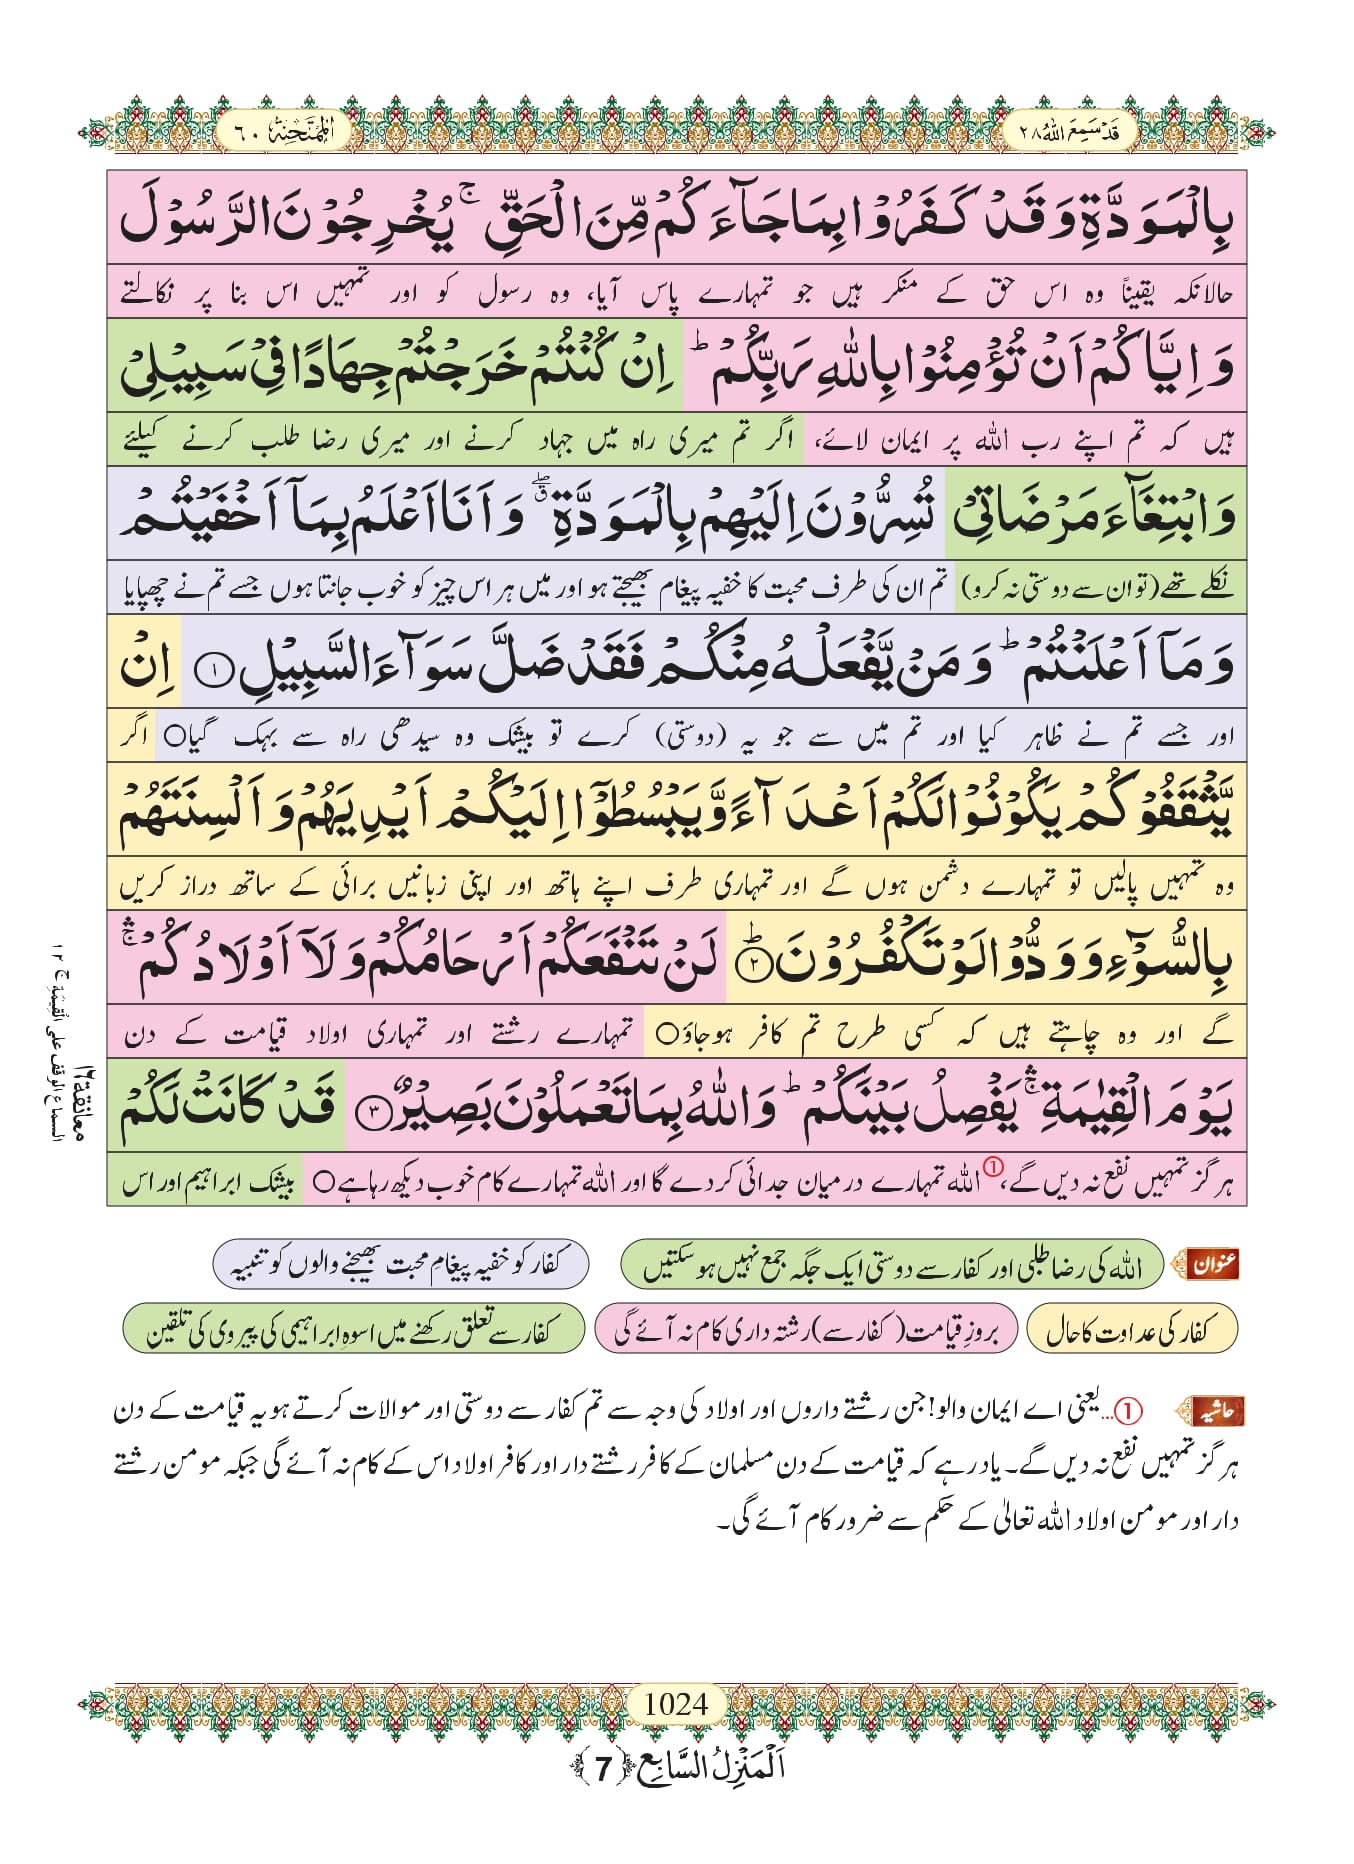 قَدْ سَمِعَ اللّٰهُ ٢٨
اَلْمُمْتَحِنَة ٦٠
بِالْمَوَدَّةِ وَ قَدْ كَفَرُوْا بِمَا جَآءَكُمْ مِّنَ الْحَقِّ ۚ یُخْرِجُوْنَ الرَّسُوْلَ
حالانکہ یقیناً وہ اس حق کے منکر ہیں جو تمہارے پاس آیا، وہ رسول کو اور تمہیں اس بنا پر نکالتے
وَ اِیَّاكُمْ اَنْ تُؤْمِنُوْا بِاللّٰهِ رَبِّكُمْ ؕ اِنْ كُنْتُمْ خَرَجْتُمْ جِهَادًا فِیْ سَبِیْلِیْ
ہیں کہ تم اپنے رب اللہ پر ایمان لائے، اگر تم میری راہ میں جہاد کرنے اور میری رضا طلب کرنے کیلئے
وَ ابْتِغَآءَ مَرْضَاتِیْ تُسِرُّوْنَ اِلَیْهِمْ بِالْمَوَدَّةِ ۖۗ وَ اَنَا اَعْلَمُ بِمَاۤ اَخْفَیْتُمْ
نکلے تھے (تو ان سے دوستی نہ کرو) تم ان کی طرف محبت کا خفیہ پیغام بھیجتے ہو اور میں ہر اس چیز کو خوب جانتا ہوں جسے تم نے چھپایا
وَ مَاۤ اَعْلَنْتُمْ ؕ وَ مَنْ یَّفْعَلْهُ مِنْكُمْ فَقَدْ ضَلَّ سَوَآءَ السَّبِیْلِ ﴿۱﴾ اِنْ
اور جسے تم نے ظاہر کیا اور تم میں سے جو یہ (دوستی) کرے تو بیشک وہ سیدھی راہ سے بہک گیا○ اگر
یَّثْقَفُوْكُمْ یَكُوْنُوْا لَكُمْ اَعْدَآءً وَّ یَبْسُطُوْۤا اِلَیْكُمْ اَیْدِیَهُمْ وَ اَلْسِنَتَهُمْ
وہ تمہیں پالیں تو تمہارے دشمن ہوں گے اور تمہاری طرف اپنے ہاتھ اور اپنی زبانیں برائی کے ساتھ دراز کریں
بِالسُّوْٓءِ وَ وَدُّوْا لَوْ تَكْفُرُوْنَ ؕ﴿۲﴾ لَنْ تَنْفَعَكُمْ اَرْحَامُكُمْ وَ لَاۤ اَوْلَادُكُمْ ۛۚ
گے اور وہ چاہتے ہیں کہ کسی طرح تم کافر ہوجاؤ○ تمہارے رشتے اور تمہاری اولاد قیامت کے دن
یَوْمَ الْقِیٰمَةِ ۛۚ یَفْصِلُ بَیْنَكُمْ ؕ وَ اللّٰهُ بِمَا تَعْمَلُوْنَ بَصِیْرٌ ﴿۳﴾ قَدْ كَانَتْ لَكُمْ
ہرگز تمہیں نفع نہ دیں گے،① اللہ تمہارے درمیان جدائی کردے گا اور اللہ تمہارے کام خوب دیکھ رہا ہے○ بیشک ابراہیم اور اس
معانقة ١٦
السماع الوقف على القيمة ج ١٢
عنوان اللہ کی رضا طلبی اور کفار سے دوستی ایک جگہ جمع نہیں ہوسکتیں کفار کو خفیہ پیغامِ محبت بھیجنے والوں کو تنبیہ
کفار کی عداوت کا حال بروزِ قیامت (کفار سے) رشتہ داری کام نہ آئے گی کفار سے تعلق رکھنے میں اسوہِ ابراہیمی کی پیروی کی تلقین
حاشیہ ①...یعنی اے ایمان والو! جن رشتے داروں اور اولاد کی وجہ سے تم کفار سے دوستی اور موالات کرتے ہو یہ قیامت کے دن
ہرگز تمہیں نفع نہ دیں گے۔ یاد رہے کہ قیامت کے دن مسلمان کے کافر رشتے دار اور کافر اولاد اس کے کام نہ آئے گی جبکہ مومن رشتے
دار اور مومن اولاد اللہ تعالیٰ کے حکم سے ضرور کام آئے گی۔
1024
اَلْمَنْزِلُ السَّابِع ﴿7﴾